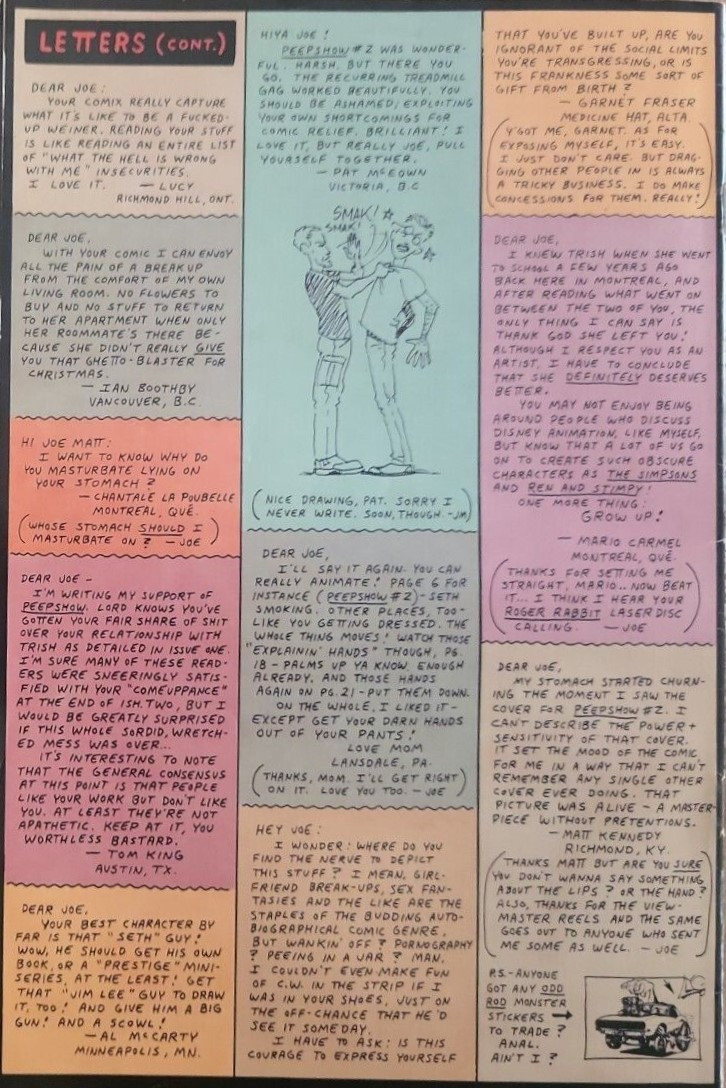 LETTERS (CONT.)
DEAR JOE:
YOUR COMIX REALLY CAPTURE
WHAT IT'S LIKE TO BE A FUCKED-
UP WEINER. READING YOUR STUFF
IS LIKE READING AN ENTIRE LIST
OF "WHAT THE HELL IS WRONG
WITH ME" INSECURITIES.
I LOVE IT. — LUCY
RICHMOND HILL, ONT.
DEAR JOE,
WITH YOUR COMIC I CAN ENJOY
ALL THE PAIN OF A BREAKUP
FROM THE COMFORT OF MY OWN
LIVING ROOM. NO FLOWERS TO
BUY AND NO STUFF TO RETURN
TO HER APARTMENT WHEN ONLY
HER ROOMMATE'S THERE BE-
CAUSE SHE DIDN'T REALLY GIVE
YOU THAT GHETTO-BLASTER FOR
CHRISTMAS.
— IAN BOOTHBY
VANCOUVER, B.C.
HI JOE MATT:
I WANT TO KNOW WHY DO
YOU MASTURBATE LYING ON
YOUR STOMACH?
— CHANTALE LA POUBELLE
MONTREAL, QUÉ.
(WHOSE STOMACH SHOULD I
MASTURBATE ON? — JOE)
DEAR JOE -
I'M WRITING MY SUPPORT OF
PEEPSHOW. LORD KNOWS YOU'VE
GOTTEN YOUR FAIR SHARE OF SHIT
OVER YOUR RELATIONSHIP WITH
TRISH AS DETAILED IN ISSUE ONE.
I'M SURE MANY OF THESE READ-
ERS WERE SNEERINGLY SATIS-
FIED WITH YOUR "COMEUPPANCE"
AT THE END OF ISH. TWO, BUT I
WOULD BE GREATLY SURPRISED
IF THIS WHOLE SORDID, WRETCH-
ED MESS WAS OVER...
IT'S INTERESTING TO NOTE
THAT THE GENERAL CONSENSUS
AT THIS POINT IS THAT PEOPLE
LIKE YOUR WORK BUT DON'T LIKE
YOU. AT LEAST THEY'RE NOT
APATHETIC. KEEP AT IT, YOU
WORTHLESS BASTARD.
— TOM KING
AUSTIN, TX.
DEAR JOE,
YOUR BEST CHARACTER BY
FAR IS THAT "SETH" GUY!
WOW, HE SHOULD GET HIS OWN
BOOK, OR A "PRESTIGE" MINI-
SERIES, AT THE LEAST! GET
THAT "JIM LEE" GUY TO DRAW
IT, TOO! AND GIVE HIM A BIG
GUN! AND A SCOWL!
— AL McCARTY
MINNEAPOLIS, MN.
HIYA JOE!
PEEPSHOW #2 WAS WONDER-
FUL. HARSH. BUT THERE YOU
GO. THE RECURRING TREADMILL
GAG WORKED BEAUTIFULLY. YOU
SHOULD BE ASHAMED; EXPLOITING
YOUR OWN SHORTCOMINGS FOR
COMIC RELIEF. BRILLIANT! I
LOVE IT, BUT REALLY JOE, PULL
YOURSELF TOGETHER.
— PAT McEOWN
VICTORIA, B.C
SMAK!
SMAK!
(NICE DRAWING, PAT. SORRY I
NEVER WRITE. SOON, THOUGH. -JM)
DEAR JOE,
I'LL SAY IT AGAIN. YOU CAN
REALLY ANIMATE! PAGE 6 FOR
INSTANCE (PEEPSHOW #2)- SETH
SMOKING. OTHER PLACES, TOO-
LIKE YOU GETTING DRESSED. THE
WHOLE THING MOVES! WATCH THOSE
"EXPLAININ' HANDS" THOUGH, PG.
18 - PALMS UP YA KNOW. ENOUGH
ALREADY. AND THOSE HANDS
AGAIN ON PG. 21 - PUT THEM DOWN.
ON THE WHOLE, I LIKED IT-
EXCEPT GET YOUR DARN HANDS
OUT OF YOUR PANTS!
LOVE MOM
LANSDALE, PA.
(THANKS, MOM. I'LL GET RIGHT
ON IT. LOVE YOU TOO. — JOE)
HEY JOE:
I WONDER: WHERE DO YOU
FIND THE NERVE TO DEPICT
THIS STUFF? I MEAN, GIRL-
FRIEND BREAK-UPS, SEX FAN-
TASIES AND THE LIKE ARE THE
STAPLES OF THE BUDDING AUTO-
BIOGRAPHICAL COMIC GENRE,
BUT WANKIN' OFF? PORNOGRAPHY
? PEEING IN A JAR? MAN.
I COULDN'T EVEN MAKE FUN
OF C.W. IN THE STRIP IF I
WAS IN YOUR SHOES, JUST ON
THE OFF-CHANCE THAT HE'D
SEE IT SOMEDAY.
I HAVE TO ASK: IS THIS
COURAGE TO EXPRESS YOURSELF
THAT YOU'VE BUILT UP, ARE YOU
IGNORANT OF THE SOCIAL LIMITS
YOU'RE TRANSGRESSING, OR IS
THIS FRANKNESS SOME SORT OF
GIFT FROM BIRTH?
— GARNET FRASER
MEDICINE HAT, ALTA.
(Y'GOT ME, GARNET. AS FOR
EXPOSING MYSELF, IT'S EASY.
I JUST DON'T CARE. BUT DRAG-
GING OTHER PEOPLE IN IS ALWAYS
A TRICKY BUSINESS. I DO MAKE
CONCESSIONS FOR THEM. REALLY!)
DEAR JOE,
I KNEW TRISH WHEN SHE WENT
TO SCHOOL A FEW YEARS AGO
BACK HERE IN MONTREAL, AND
AFTER READING WHAT WENT ON
BETWEEN THE TWO OF YOU, THE
ONLY THING I CAN SAY IS
THANK GOD SHE LEFT YOU!
ALTHOUGH I RESPECT YOU AS AN
ARTIST, I HAVE TO CONCLUDE
THAT SHE DEFINITELY DESERVES
BETTER.
YOU MAY NOT ENJOY BEING
AROUND PEOPLE WHO DISCUSS
DISNEY ANIMATION, LIKE MYSELF,
BUT KNOW THAT A LOT OF US GO
ON TO CREATE SUCH OBSCURE
CHARACTERS AS THE SIMPSONS
AND REN AND STIMPY!
ONE MORE THING:
GROW UP!
— MARIO CARMEL
MONTREAL, QUÉ.
(THANKS FOR SETTING ME
STRAIGHT, MARIO.. NOW BEAT
IT... I THINK I HEAR YOUR
ROGER RABBIT LASER DISC
CALLING. — JOE)
DEAR JOE,
MY STOMACH STARTED CHURN-
ING THE MOMENT I SAW THE
COVER FOR PEEPSHOW #2. I
CAN'T DESCRIBE THE POWER +
SENSITIVITY OF THAT COVER.
IT SET THE MOOD OF THE COMIC
FOR ME IN A WAY THAT I CAN'T
REMEMBER ANY SINGLE OTHER
COVER EVER DOING. THAT
PICTURE WAS ALIVE - A MASTER-
PIECE WITHOUT PRETENTIONS.
— MATT KENNEDY
RICHMOND, KY.
(THANKS MATT BUT ARE YOU SURE
YOU DON'T WANNA SAY SOMETHING
ABOUT THE LIPS? OR THE HAND?
ALSO, THANKS FOR THE VIEW-
MASTER REELS AND THE SAME
GOES OUT TO ANYONE WHO SENT
ME SOME AS WELL. — JOE)
P.S.- ANYONE
GOT ANY ODD
ROD MONSTER
STICKERS →
TO TRADE?
ANAL.
AIN'T I?